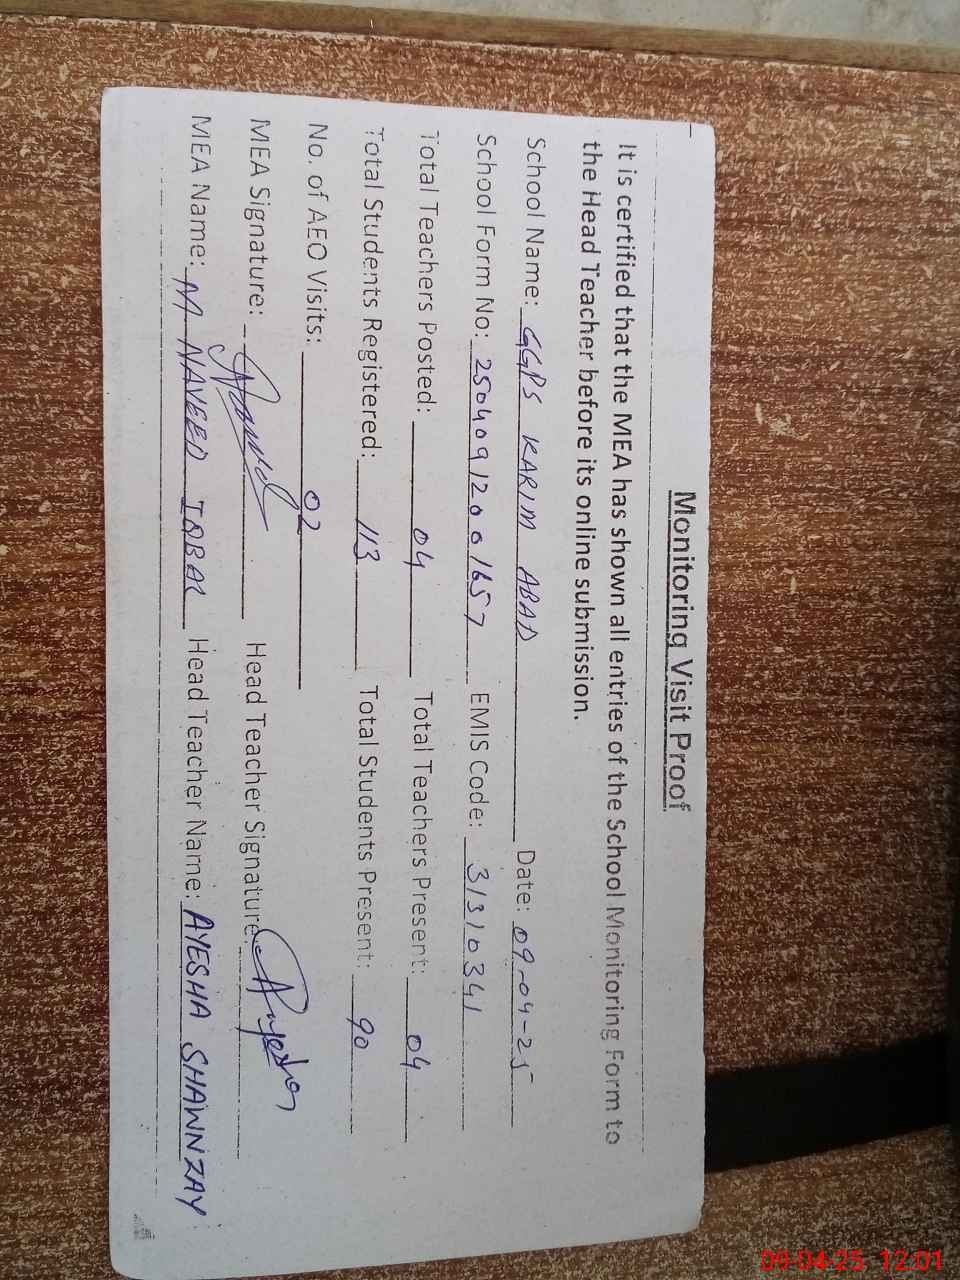 Monitoring Visit Proof
It is certified that the MEA has shown all entries of the School Monitoring Form to
the Head Teacher before its online submission.
School Name: GGPS KARIM ABAD Date: 09-04-25
School Form No: 25040912001657 EMIS Code: 31310341
Total Teachers Posted: 04 Total Teachers Present: 04
Total Students Registered: 113 Total Students Present: 90
No. of AEO Visits: 02
MEA Signature: Head Teacher Signature:
MEA Name: M NAVEED IQBAL Head Teacher Name: AYESHA SHAWNZAY
09-04-25 12:01